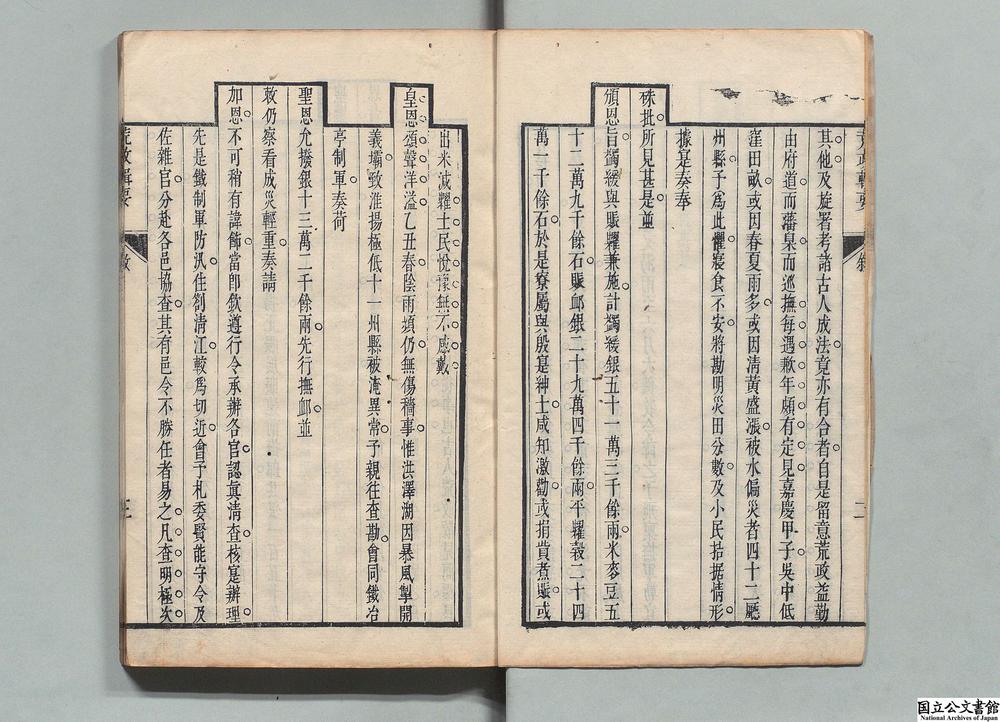 其他及旋署考諸古人成法竟亦有合者自是留意荒政益勤
由府道而藩臬而巡撫每遇歉年頗有定見嘉慶甲子吳中低
窪田畝或因春夏雨多或因清黃盛漲被水偏災者四十二廳
州縣予為此懼寢食不安將勘明災田分數及小民拮据情形
據寔奏奉
硃批所見甚是並
頒恩旨蠲緩與賑糶兼施計蠲緩銀五十一萬三千餘兩米麥豆五
十二萬九千餘石賑卹銀二十九萬四千餘兩平糶穀二十四
萬一千餘石於是寮屬與殷寔紳士咸知激勸或捐貲煮賑或
荒政輯要
敘
二
出米減糶士民悅豫無不感戴
皇恩頌聲洋溢乙丑春陰雨頻仍無傷穡事惟洪澤湖因暴風掣開
義壩致淮揚極低十一州縣被淹異常予親往查勘會同鐵冶
亭制軍奏荷
聖恩允撥銀十三萬二千餘兩先行撫卹並
敕仍察看成災輕重奏請
加恩不可稍有諱飾當即欽遵行令承辦各官認真清查核寔辦理
先是鐵制軍防汛住劄清江較為切近會予札委賢能守令及
佐雜官分赴各邑協查其有邑令不勝任者易之凡查明極次
荒政輯要
敘
三
国立公文書館
National Archives of Japan